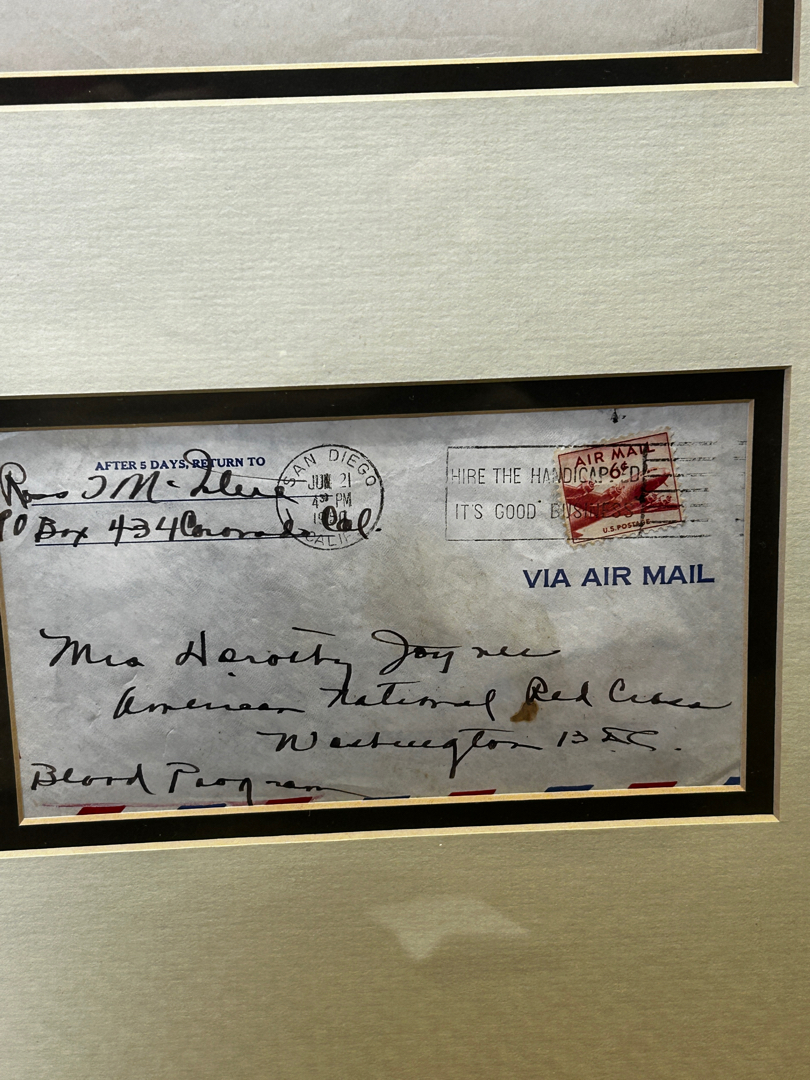 AFTER 5 DAYS, RETURN TO
Ross T Mc
PO Box 434 Coronado Cal.
SAN DIEGO
JUN 21
4 30 PM
CALIF.
HIRE THE HANDICAPPED
IT'S GOOD BUSINESS
AIR MAIL
6¢
U.S. POSTAGE
VIA AIR MAIL
Mrs Dorothy Joyner
American National Red Cross
Washington 13 D.C.
Blood Program